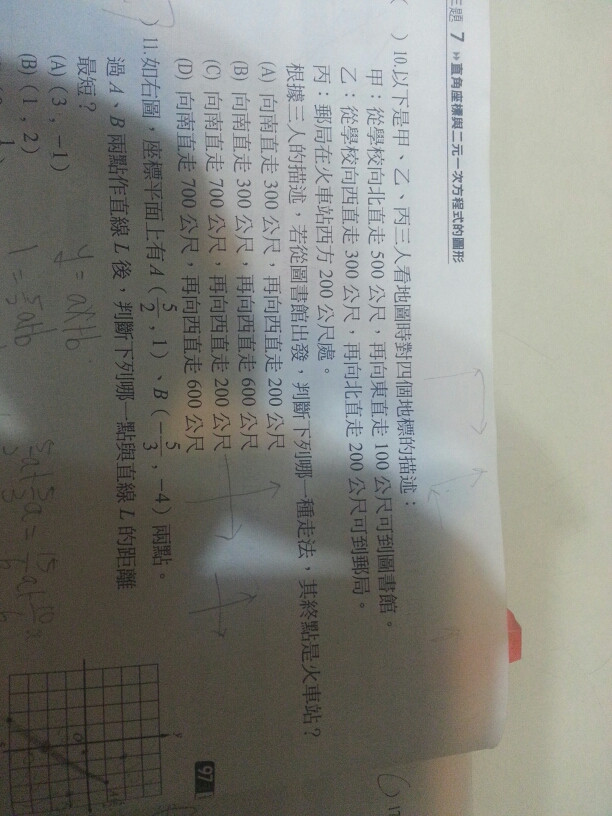 7 直角座標與二元一次方程式的圖形
( ) 10. 以下是甲、乙、丙三人看地圖時對四個地標的描述：
甲：從學校向北直走 500 公尺，再向東直走 100 公尺可到圖書館。
乙：從學校向西直走 300 公尺，再向北直走 200 公尺可到郵局。
丙：郵局在火車站西方 200 公尺處。
根據三人的描述，若從圖書館出發，判斷下列哪一種走法，其終點是火車站？
(A) 向南直走 300 公尺，再向西直走 200 公尺
(B) 向南直走 300 公尺，再向西直走 600 公尺
(C) 向南直走 700 公尺，再向西直走 200 公尺
(D) 向南直走 700 公尺，再向西直走 600 公尺
) 11. 如右圖，座標平面上有 A ( 5/2 , 1 )、B ( - 5/3 , -4 ) 兩點。
過 A、B 兩點作直線 L 後，判斷下列哪一點與直線 L 的距離
最短？
(A) ( 3 , -1 )
(B) ( 1 , 2 )
y = ax+b
y
O
A
97